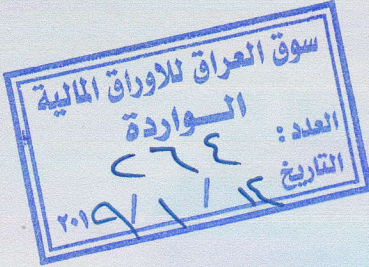 سوق العراق للاوراق المالية
الـــواردة
العدد : ٢٦٤
التاريخ ١٤ / ١ / ٢٠١٩